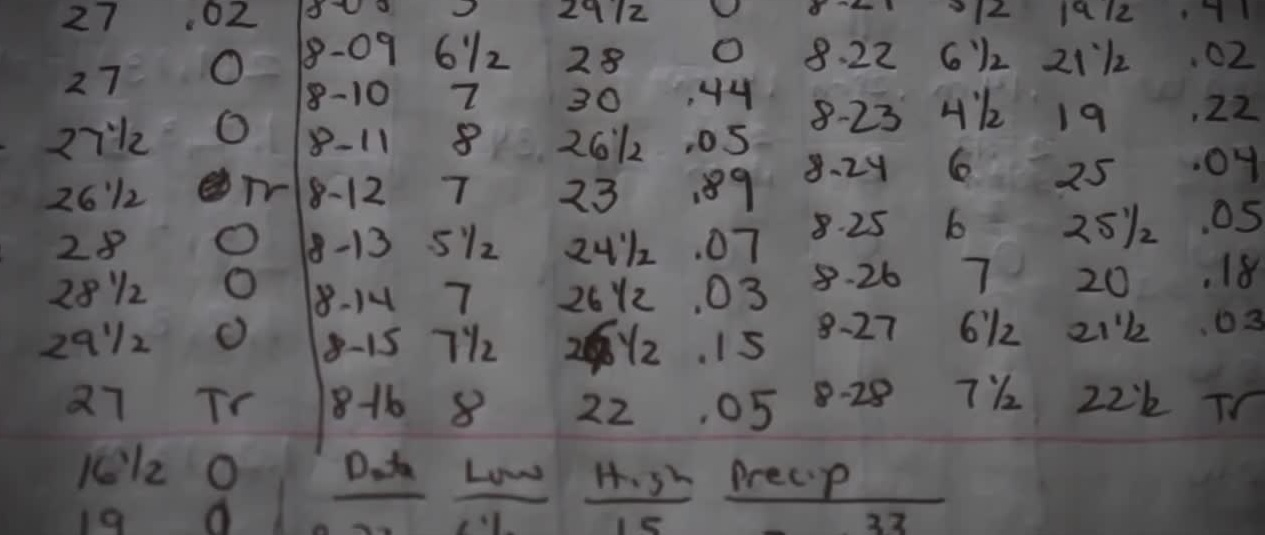 27 .02 29½ 0
27 0 8-09 6½ 28 0 8-22 6½ 21½ .02
27½ 0 8-10 7 30 .44 8-23 4½ 19 .22
26½ Tr 8-11 8 26½ .05 8-24 6 25 .04
28 0 8-12 7 23 .89 8-25 6 25½ .05
28½ 0 8-13 5½ 24½ .07 8-26 7 20 .18
29½ 0 8-14 7 26½ .03 8-27 6½ 21½ .03
27 Tr 8-15 7½ .15 8-28 7½ 22½ Tr
8-16 8 22 .05
16½ 0 Date Low High Precip
19 0 15 .33